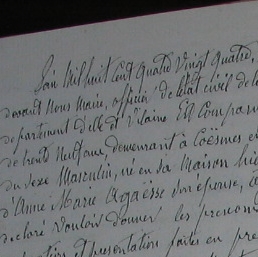 L'an Mil huit Cent quatre Vingt quatre,
devant Nous Maire, officier de l'état civil de la
département d'Ille et Vilaine Est Comparu
de trente Neuf ans, demeurant à Coësmes
du sexe Masculin, né en sa maison hier
d'Anne Marie Agaësse son épouse,
déclaré vouloir donner les prénoms
et présentation faites en